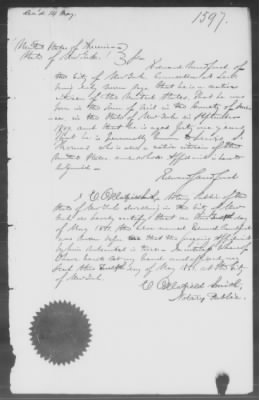 Rec'd 14 May.
1597.
United States of America
State of New York. } ss
Edward Sandford of
the City of New York Counsellor at Law
being duly sworn says that he is a native
citizen of the United States, that he was
born in the of in the County of
in the State of New York in
and that he is aged forty one years
that he is personally
who is a native citizen of the
United States and whose affidavit is hereto
subjoined
Edward Sandford
I C Oldfield Smith, Notary Public of the
State of New York dwelling in the City of New
York do hereby certify that on the day
of May the above named Edward Sandford
was before me that the foregoing affidavit
by him subscribed is true. In testimony whereof I
have hereto set my hand and affixed my
seal this day of May at the City
of New York.
C Oldfield Smith,
Notary Public.